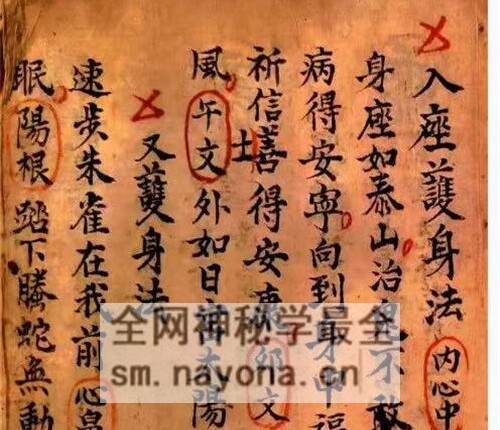 入座護身法 內心中
身座如泰山治鬼不敢
病得安寧向到 身中福
祈信士善得安康 文
風午文外如日 太陽
又護身法
速步朱雀在我前心
眠陽根踏下螣蛇無動
全网神秘学最全
sm.nayona.cn